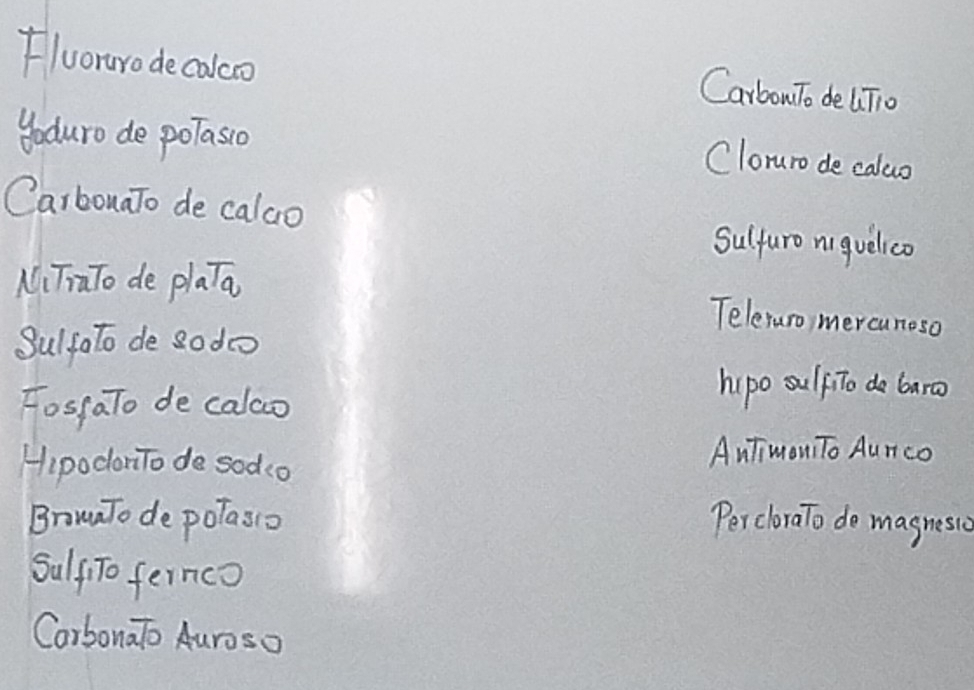 Fluoruro de calcio
Yoduro de potasio
Carbonato de calcio
Nitrato de plata
Sulfato de sodio
Fosfato de calcio
Hipoclorito de sodio
Bromato de potasio
Sulfito ferrico
Carbonato Auroso
Carbonito de litio
Cloruro de calcio
Sulfuro niquélico
Teleruro mercurioso
hipo sulfito de bario
Antimonito Aurico
Perclorato de magnesio